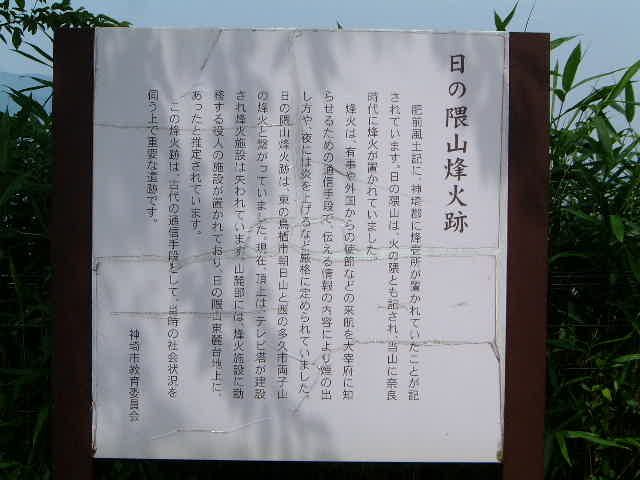 日の隈山烽火跡
肥前風土記に、神埼郡に烽壱所が置かれていたことが記
されています。日の隈山は、火の隈とも記され、当山に奈良
時代に烽火が置かれていました。
烽火は、有事や外国からの使節などの来航を大宰府に知
らせるための通信手段で、伝える情報の内容により煙の出
し方や、夜には炎を上げるなど厳格に定められていました。
日の隈山烽火跡は、東の鳥栖市朝日山と西の多久市両子山
の烽火と繋がっていました。現在、頂上は、テレビ塔が建設
され烽火施設は失われています。山麓部には、烽火施設に勤
務する役人の施設が置かれており、日の隈山東麓台地上に、
あったと推定されています。
この烽火跡は、古代の通信手段として、当時の社会状況を
伺う上で重要な遺跡です。
神埼市教育委員会